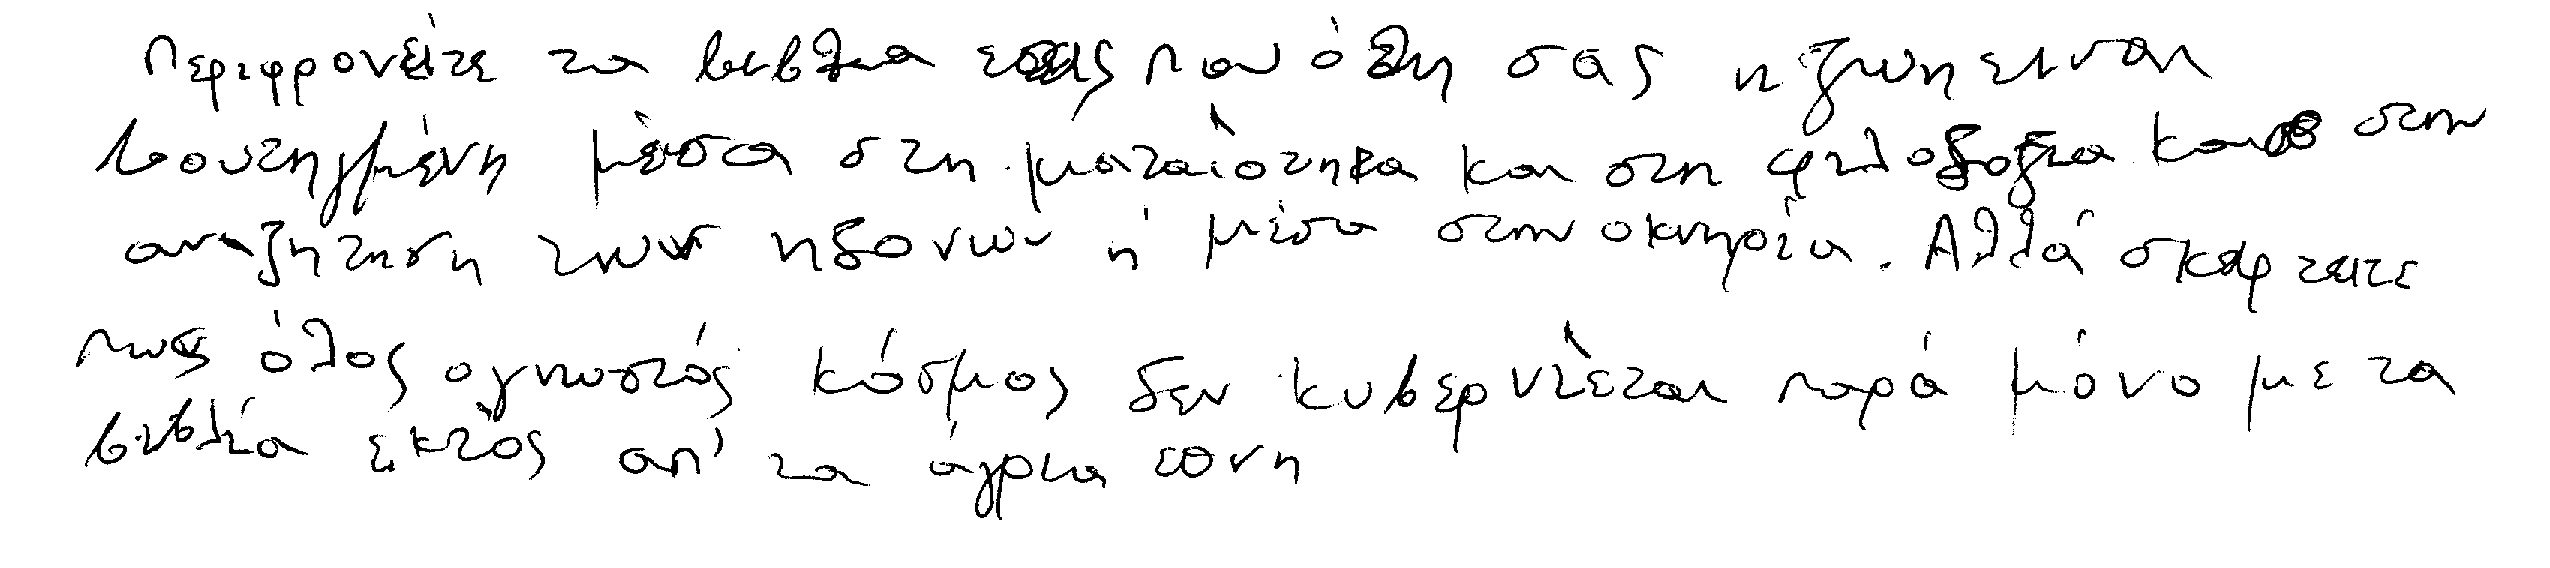 Περιφρονείτε τα βιβλια εσεις που όλη σας η ζωη ειναι
βουτηγμένη μέσα στη ματαιότητα και στη φιλοδοξια και στην
αναζητηση των ηδονών ή μέσα στην οκνηρία. Αλλά σκεφτειτε
πως όλος ο γνωστός κόσμος δεν κυβερνιέται παρά μόνο με τα
βιβλία εκτός απ' τα άγρια εθνη